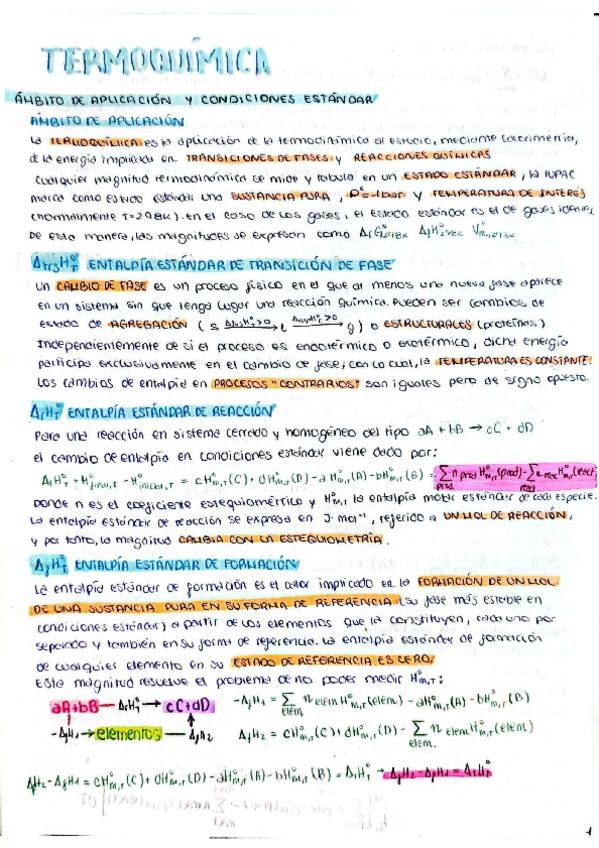 TERMOQUÍMICA
ÁMBITO DE APLICACIÓN Y CONDICIONES ESTÁNDAR
ÁMBITO DE APLICACIÓN
La TERMOQUÍMICA es la aplicación de la termodinámica al estudio, mediante calorimetría,
de la energía implicada en TRANSICIONES DE FASES y REACCIONES QUÍMICAS
Cualquier magnitud termodinámica se mide y tabula en un ESTADO ESTÁNDAR, la IUPAC
marca como estado estándar una SUSTANCIA PURA, P°=1bar y TEMPERATURA DE INTERÉS
(normalmente T=298K). En el caso de los gases, el estado estándar es el de gases ideales,
De esta manera, las magnitudes se expresan como
ΔtrsH°T ENTALPÍA ESTÁNDAR DE TRANSICIÓN DE FASE
Un CAMBIO DE FASE es un proceso físico en el que al menos una nueva fase aparece
en un sistema sin que tenga lugar una reacción química. Pueden ser cambios de
estado de AGREGACIÓN (s → l → g) o ESTRUCTURALES (proteínas)
Independientemente de si el proceso es endotérmico o exotérmico, dicha energía
participa exclusivamente en el cambio de fase; con lo cual, la TEMPERATURA ES CONSTANTE.
Los cambios de entalpía en PROCESOS "CONTRARIOS" son iguales pero de signo opuesto.
ΔrH°T ENTALPÍA ESTÁNDAR DE REACCIÓN
Para una reacción en sistema cerrado y homogéneo del tipo aA + bB → cC + dD
el cambio de entalpía en condiciones estándar viene dado por:
ΔrH°T = H°final,T - H°inicial,T = cH°m,T(C) + dH°m,T(D) - aH°m,T(A) - bH°m,T(B) = Σprod n prod H°m,T(prod) - Σreac n reac H°m,T(react)
Donde n es el coeficiente estequiométrico y H°m,T la entalpía molar estándar de cada especie.
La entalpía estándar de reacción se expresa en J·mol⁻¹, referido a UN MOL DE REACCIÓN,
y por tanto, la magnitud CAMBIA CON LA ESTEQUIOMETRÍA.
ΔfH°T ENTALPÍA ESTÁNDAR DE FORMACIÓN
La entalpía estándar de formación es el calor implicado en la FORMACIÓN DE UN MOL
DE UNA SUSTANCIA PURA EN SU FORMA DE REFERENCIA (su fase más estable en
condiciones estándar) a partir de los elementos que la constituyen, cada uno por
separado y también en su forma de referencia. La entalpía estándar de formación
de cualquier elemento en su ESTADO DE REFERENCIA ES CERO.
Esta magnitud resuelve el problema de no poder medir H°m,T:
aA+bB — ΔrH°T → cC+dD
-ΔfH1 = Σelem n elem H°m,T(elem) - aH°m,T(A) - bH°m,T(B)
-ΔfH1 → elementos → ΔfH2
ΔfH2 = cH°m,T(C) + dH°m,T(D) - Σelem. n elem H°m,T(elem)
ΔfH2 - ΔfH1 = cH°m,T(C) + dH°m,T(D) - aH°m,T(A) - bH°m,T(B) = ΔrH°T → ΔfH2 - ΔfH1 = ΔrH°T
1